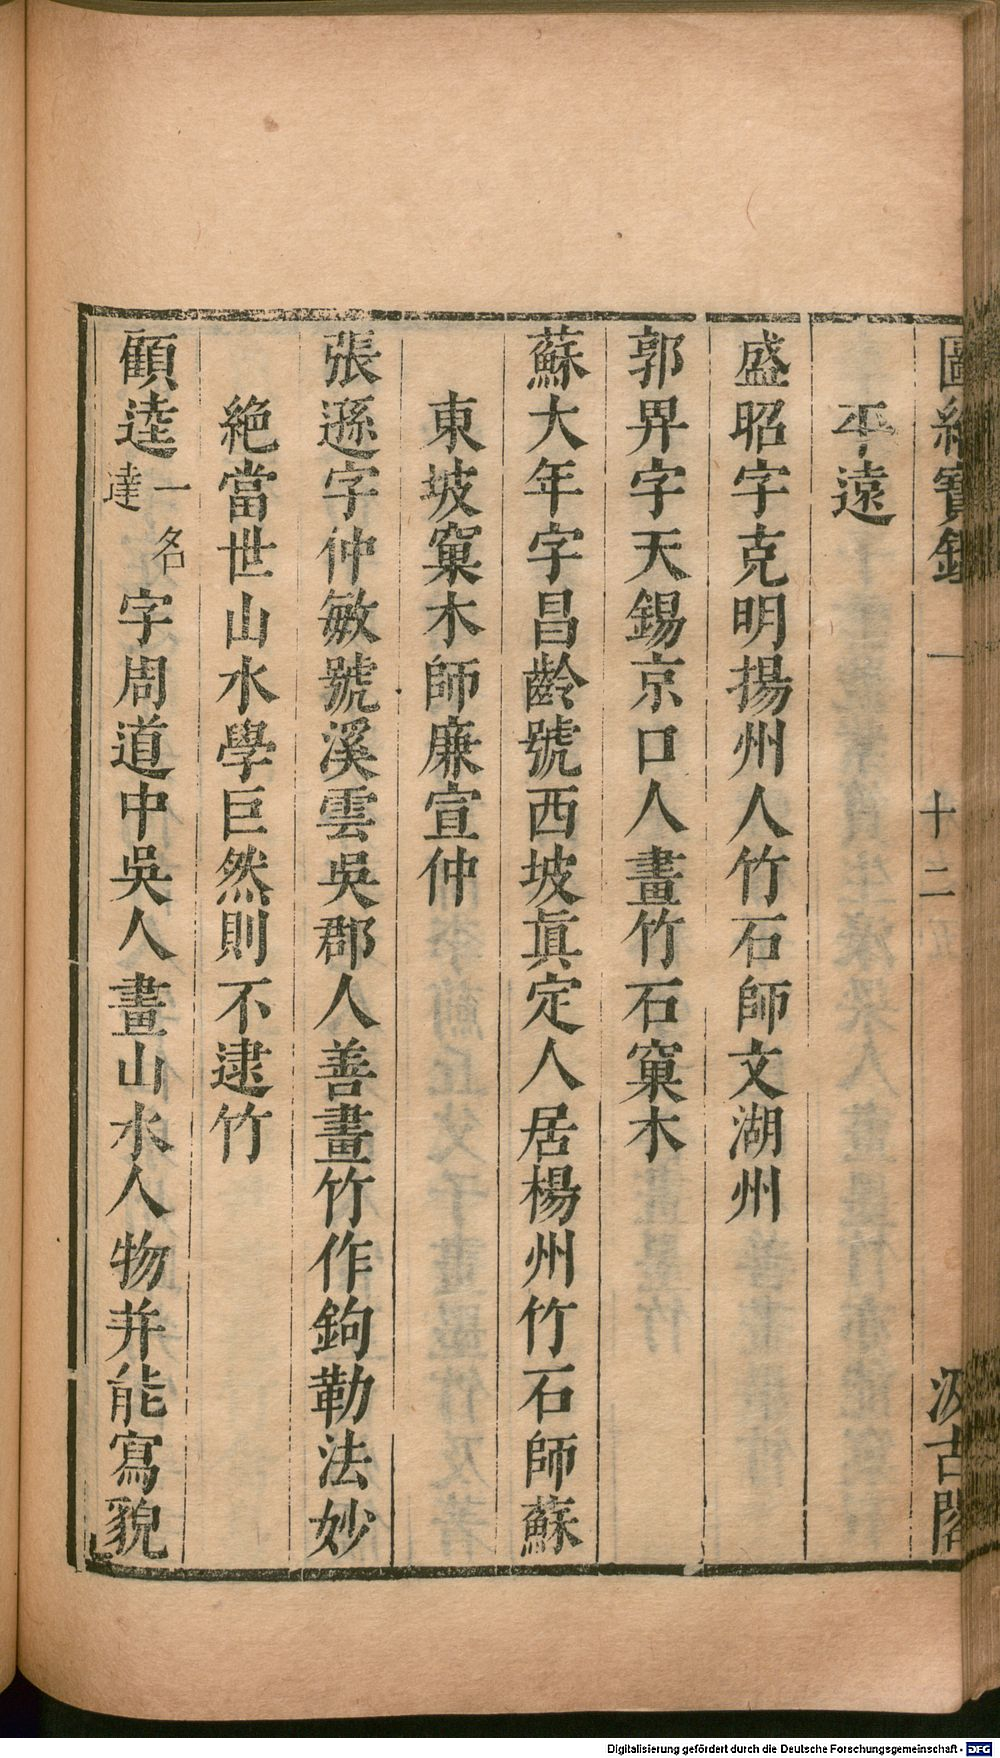 圖繪寶鑑 一 十二 汲古閣
平遠
盛昭字克明揚州人竹石師文湖州
郭畀字天錫京口人畫竹石窠木
蘇大年字昌齡號西坡眞定人居楊州竹石師蘇
東坡窠木師廉宣仲
張遜字仲敏號溪雲吳郡人善畫竹作鉤勒法妙
絶當世山水學巨然則不逮竹
顧逵一名達字周道中吳人畫山水人物并能寫貌
Digitalisierung gefördert durch die Deutsche Forschungsgemeinschaft - DFG